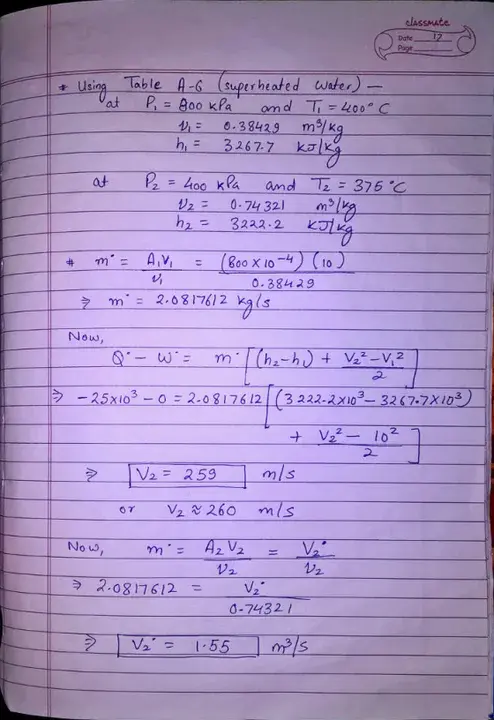 classmate
Date 17
Page
* Using Table A-6 (superheated water) —
at P₁ = 800 kPa and T₁ = 400° C
ν₁ = 0.38429 m³/kg
h₁ = 3267.7 kJ/kg
at P₂ = 400 kPa and T₂ = 375 °C
ν₂ = 0.74321 m³/kg
h₂ = 3222.2 kJ/kg
* m˙ = A₁V₁/ν₁ = (800 X 10⁻⁴) (10)/0.38429
⇒ m˙ = 2.0817612 kg/s
Now,
Q˙ - W˙ = m˙ [(h₂-h₁) + (V₂² - V₁²)/2]
⇒ -25x10³ - 0 = 2.0817612 [(3222.2x10³ - 3267.7X10³)
+ (V₂² - 10²)/2]
⇒ V₂ = 259 m/s
or V₂ ≈ 260 m/s
Now, m˙ = A₂V₂/ν₂ = V₂˙/ν₂
⇒ 2.0817612 = V₂˙/0.74321
⇒ V₂˙ = 1.55 m³/s